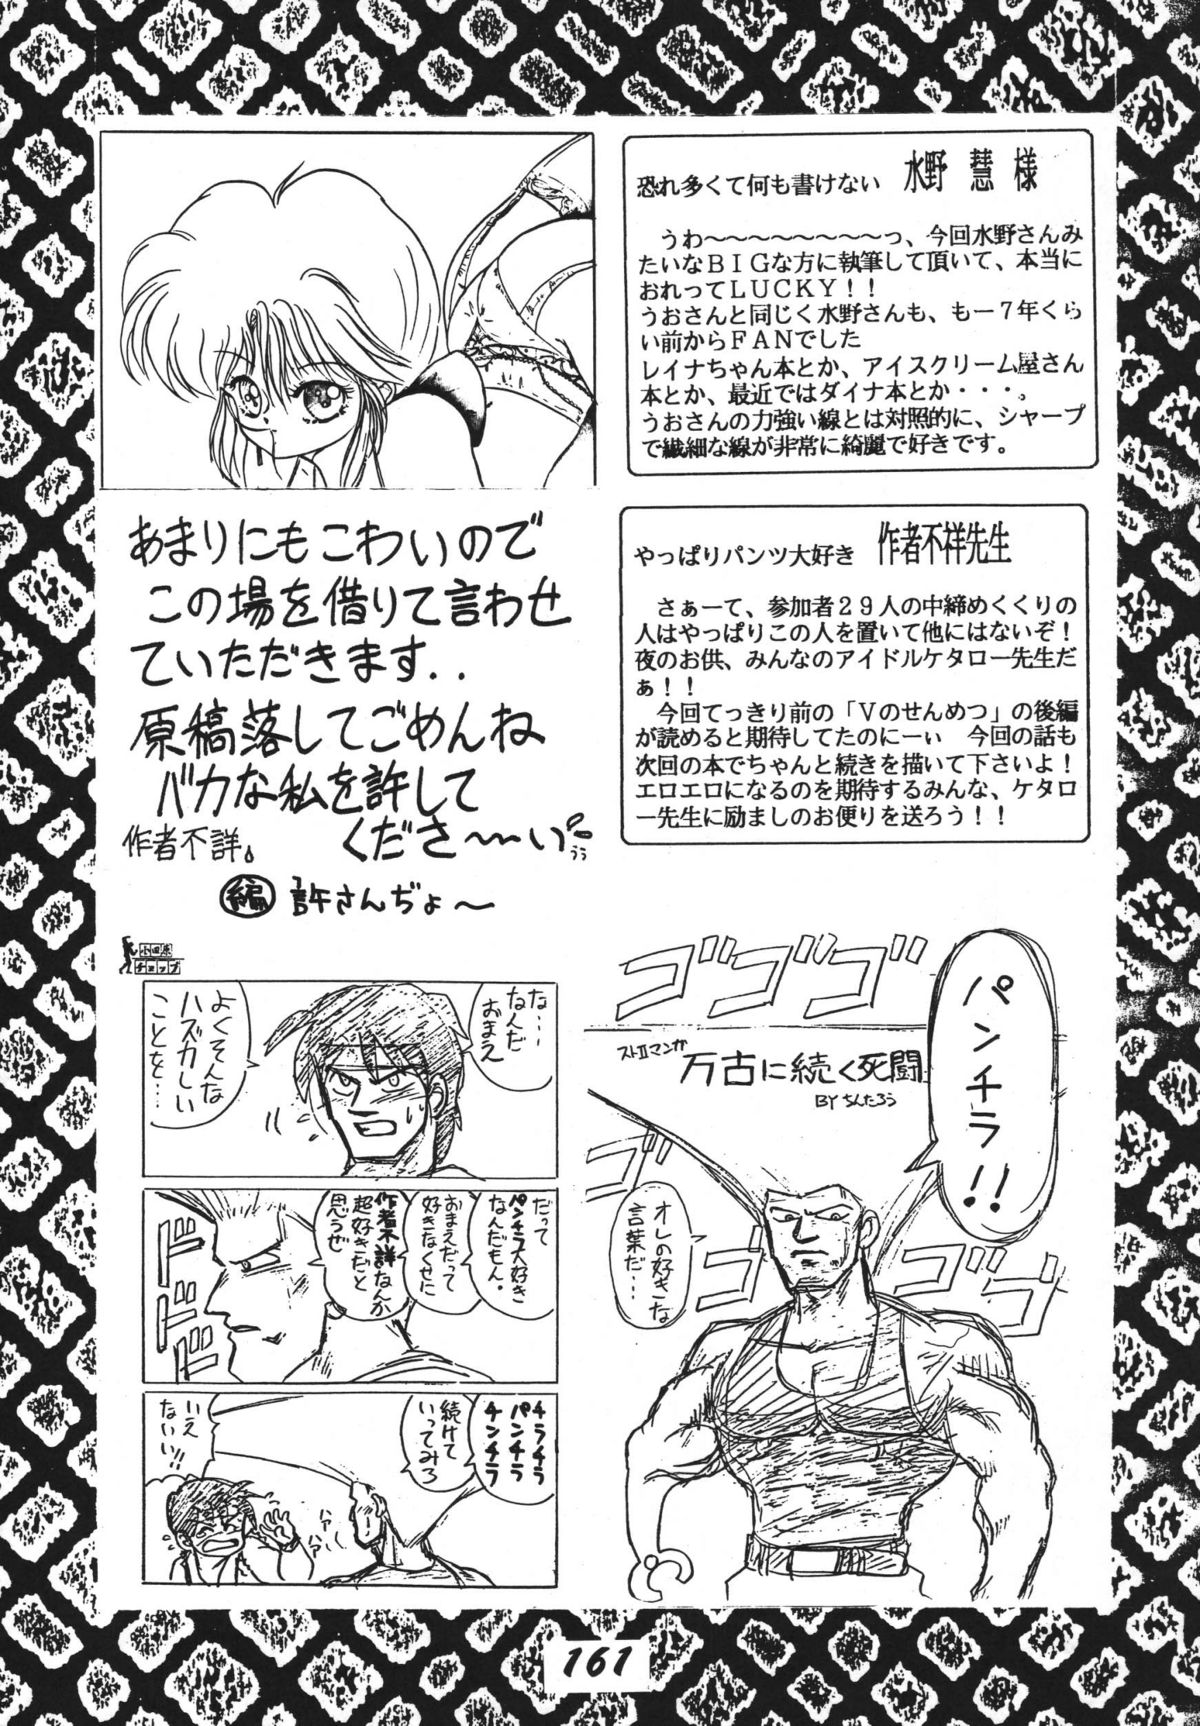 恐れ多くて何も書けない 水野 慧 様
うわ〜〜〜〜〜〜〜〜っ、今回水野さんみ
たいなＢＩＧな方に執筆して頂いて、本当に
おれってＬＵＣＫＹ！！
うおさんと同じく水野さんも、もー７年くら
い前からＦＡＮでした
レイナちゃん本とか、アイスクリーム屋さん
本とか、最近ではダイナ本とか・・・。
うおさんの力強い線とは対照的に、シャープ
で繊細な線が非常に綺麗で好きです。
あまりにもこわいので
この場を借りて言わせ
ていただきます..
原稿落してごめんね
バカな私を許して
くださ〜〜い
うぅ
作者不詳。
編 許さんぢょ〜
やっぱりパンツ大好き 作者不祥先生
さぁーて、参加者２９人の中締めくくりの
人はやっぱりこの人を置いて他にはないぞ！
夜のお供、みんなのアイドルケタロー先生だ
ぁ！！
今回てっきり前の「Ｖのせんめつ」の後編
が読めると期待してたのにーぃ 今回の話も
次回の本でちゃんと続きを描いて下さいよ！
エロエロになるのを期待するみんな、ケタロ
ー先生に励ましのお便りを送ろう！！
小田原
チョップ
ゴゴゴ
パンチラ!!
ストⅡマンガ
万古に続く死闘
BY ちんたろう
オレの好きな
言葉だ…
ゴ
ゴ
ゴ
ゴ
な…
なんだ
おまえ
よくそんな
ハズカしい
ことを…
だって
パンチラ大好き
なんだもん。
おまえだって
好きなくせに
作者不詳なんか
超好きだと
思うぜ
ドドド
チラチラ
パンチラ
チンチラ
続けて
いってみろ
いえ
ないい!!
161